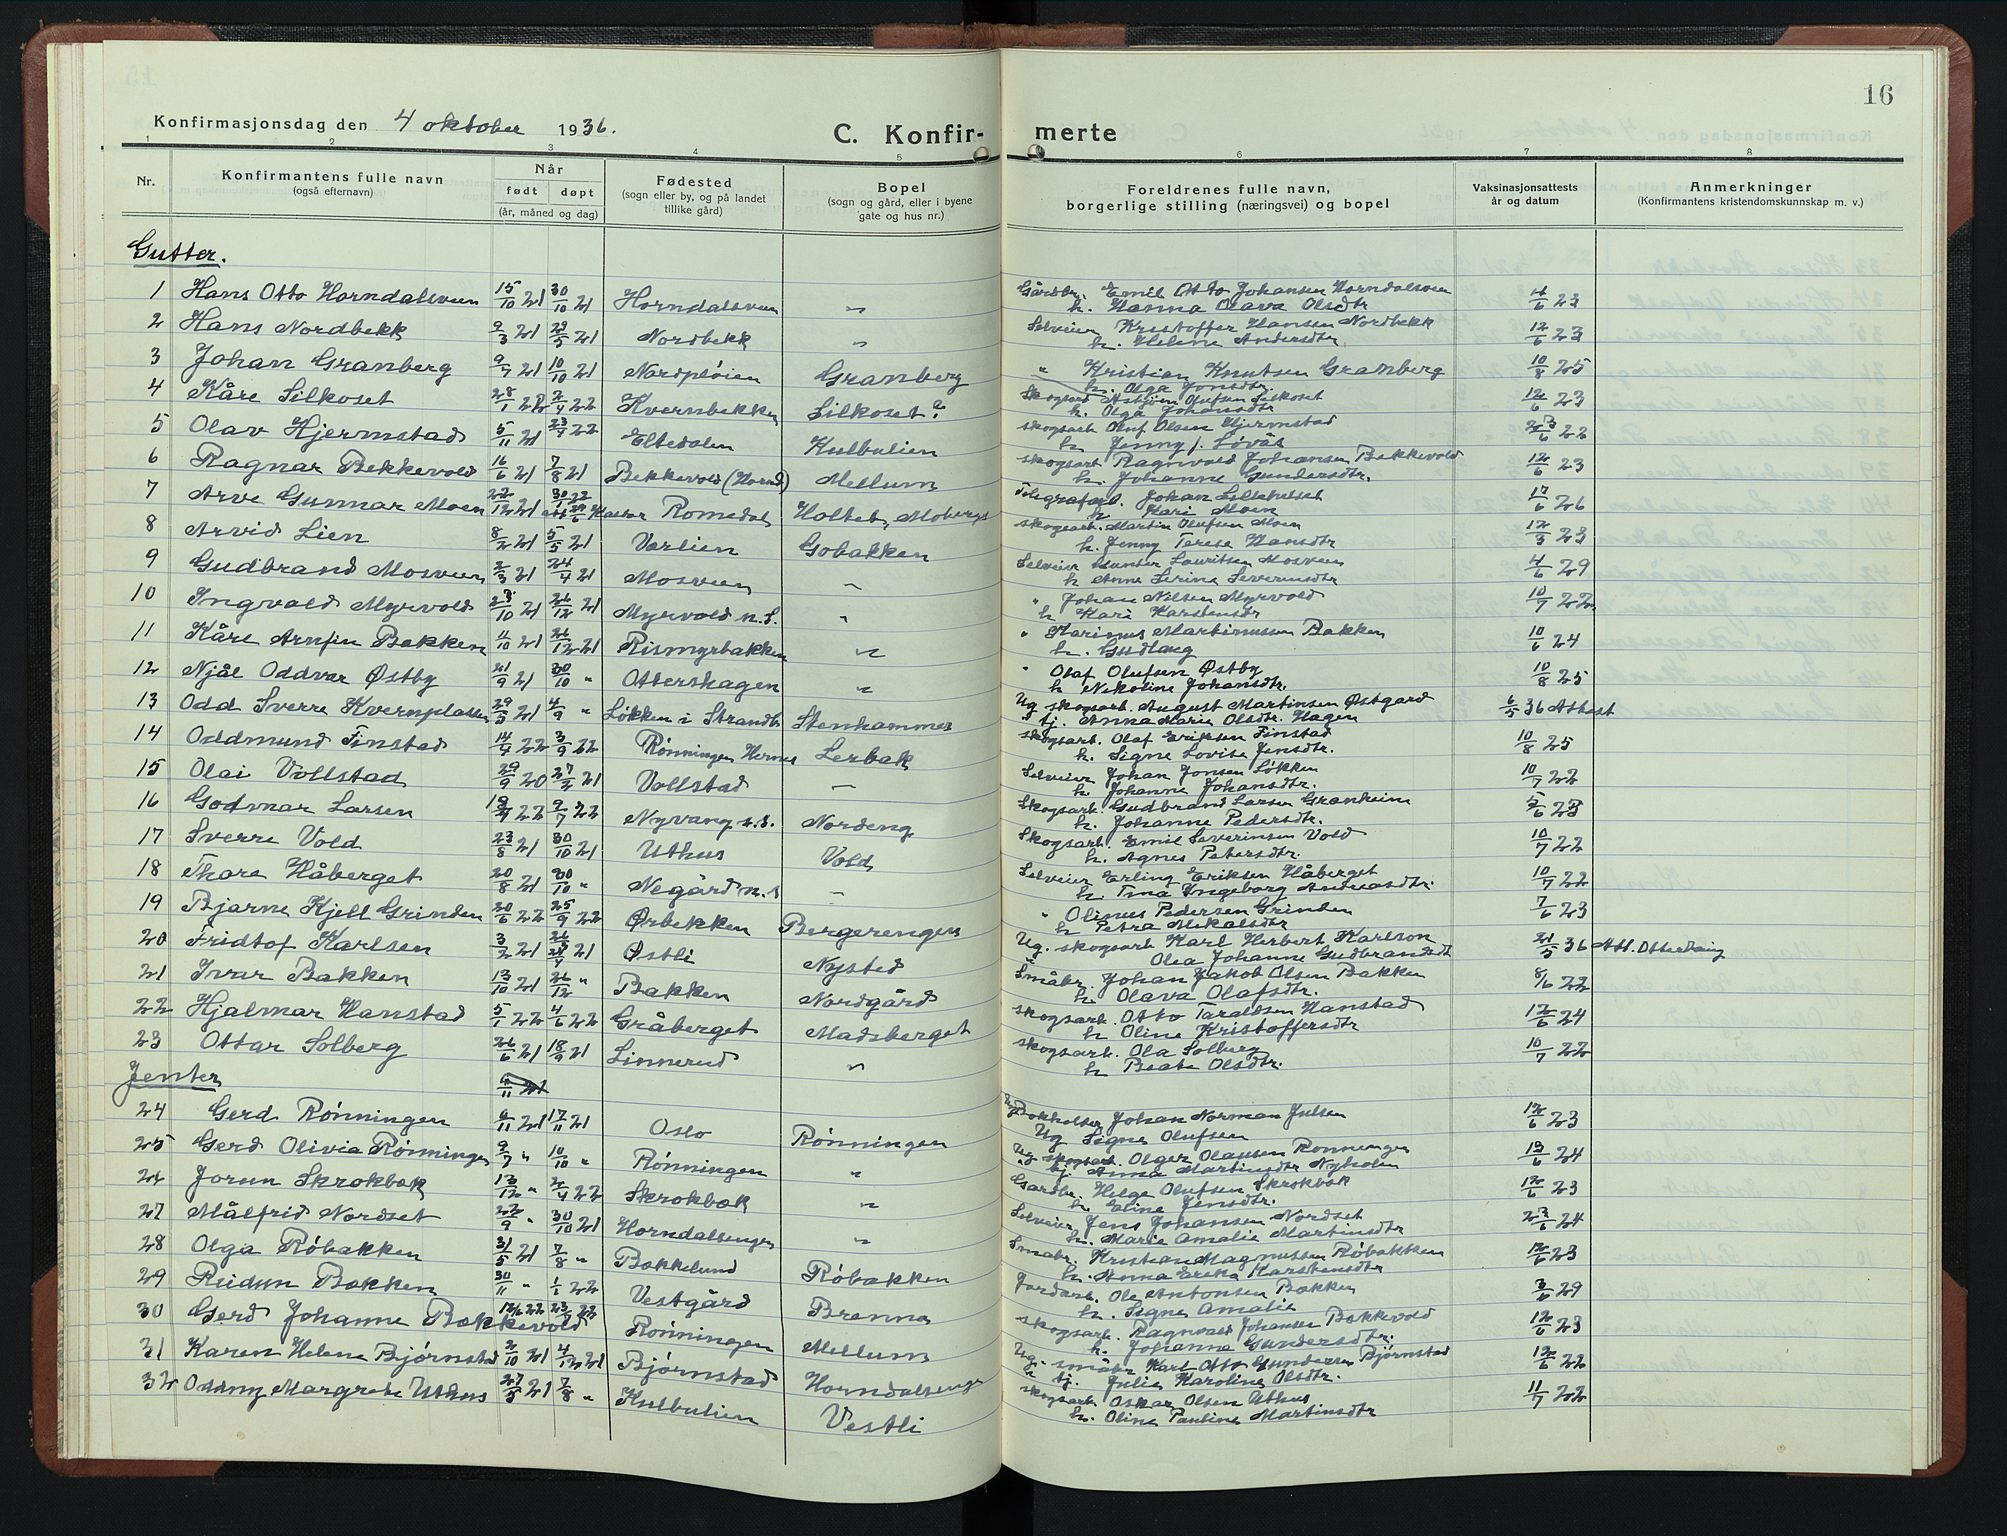 16
Konfirmasjonsdag den 4 oktober 1936.
C. Konfir- merte
1 2 3 4 5 6 7 8
Nr.
Konfirmantens fulle navn
(også efternavn)
Når
født døpt
(år, måned og dag)
Fødested
(sogn eller by, og på landet
tillike gård)
Bopel
(sogn og gård, eller i byene
gate og hus nr.)
Foreldrenes fulle navn,
borgerlige stilling (næringsvei) og bopel
Vaksinasjonsattests
år og datum
Anmerkninger
(Konfirmantens kristendomskunnskap m. v.)
Gutter.
1 Hans Otto Horndalsveen 15/10 21 30/10 21 Horndalsveen " Gårdbr. Emil Otto Johansen Horndalsveen 4/6 23
h. Hanna Olava Olsdtr
2 Hans Nordbekk 9/3 21 29/5 21 Nordbekk " Selveier Kristoffer Hansen Nordbekk 12/6 23
h. Helene Andersdtr
3 Johan Granberg 9/7 21 10/10 21 Nordpløien Granberg " Kristian Knutsen Granberg 10/8 25
h. Olga Jonsdtr.
4 Kåre Silkoset 28/1 22 2/4 22 Kvernbekken Silkoset? Skogsarb Olufsen Silkoset 12/6 23
h. Olga Johansdtr
5 Olav Hjermstad 5/11 21 23/4 22 Eltedalen Kulbulien skogsarb. Oluf Olsen Hjermstad 23/6 22
h. Jenny f. Løvås
6 Ragnar Bekkevold 16/6 21 7/8 21 Bekkevold (Hornd) Mellum skogsarb Ragnvald Johansen Bekkevold 12/6 23
h. Johanne Gundersdtr.
7 Arve Gunnar Moen 22/12 21 30/1 22 Romedal Holtet, Moberget Telegrafarb. Johan Lillehelset 17/6 26
h Kari Moen
8 Arvid Lien 8/2 21 5/5 21 Varlien Gobakken skogsarb. Martin Olufsen Moen 12/3 23
h. Jenny Terese Hansdtr
9 Gudbrand Mosveen 2/3 21 24/4 21 Mosveen " Selveier Gunder Lauritsen Mosveen 4/6 29
h Anne Serine Severinsdtr
10 Ingvald Myrvold 23/10 21 26/12 21 Myrvold n.S. " " Johan Nilsen Myrvold 10/7 22
h Kari Karstensdtr
11 Kåre Arnfin Bakken 4/10 21 26/12 21 Rismyrbakken " " Karinus Martinussen Bakken 10/6 24
h. Gudlaug
12 Njål Oddvar Østby 21/9 21 30/10 " Otterskagen " " Olaf Olufsen Østby 10/8 25
h Nikoline Johansdtr.
13 Odd Sverre Kvernplassen 29/5 21 4/9 " Løkken i Strandb Stenhammer Ug skogsarb. August Martinsen Østgård 6/5 36 Attest
" tj. Anna Marie Olsdtr. Hagen
14 Oddmund Finstad 14/4 22 3/9 22 Rønningen Hernes Lerbak skogsarb. Olaf Eriksen Finstad 10/8 25
h. Signe Lovise Jensdtr.
15 Olai Vollstad 29/9 20 27/2 21 Vollstad — Selveier Johan Jonsen Løkken 10/7 22
h. Johanne Johansdtr.
16 Godvnar Larsen 19/4 22 9/7 22 Nyvang n.S. Nordeng Skogsarb. Gudbrand Larsen Granheim 5/6 23
h. Johanne Pedersdtr.
17 Sverre Vold 23/8 21 30/10 21 Uthus Vold Skogsarb. Emil Severinsen Vold 10/7 22
h. Agnes Petersdtr.
18 Thore Håberget 20/8 21 30/10 " Negård n.S — Selveier Erling Eriksen Håberget 10/7 22
h. Tina Ingeborg Andreasdtr.
19 Bjarne Kjell Grinden 20/6 22 25/9 22 Ørbekken Bergerengen " Olinus Pedersen Grinden 7/6 23
h Petra Mikalsdtr
20 Fridtof Karlsen 3/2 21 24/4 21 Østli Nysted Ug. skogsarb Karl Herbert Karlson 21/5 36 Att. Otterbaing
Olea Johanne Gudbrandsdt
21 Ivar Bakken 13/10 21 26/12 " Bakken Nordgård Småbr. Johan Jakob Olsen Bakken 8/6 22
h. Olava Olafsdtr.
22 Hjalmar Hanstad 5/1 22 4/6 22 Gråberget Madsberget skogsarb. Otto Taraldsen Hanstad 12/6 24
h Oline Kristoffersdtr
23 Ottar Solberg 26/6 21 18/9 21 Linnerud " skogsarb. Ola Solberg 10/7 22
h Beate Olsdtr.
Jenter
24 Gerd Rønningen 6/11 21 17/11 21 Oslo Rønningen Ug Bokholder Johan Norman Julsen 12/6 23
Ug Signe Olufsen
25 Gerd Olivia Rønningen 9/7 " 10/10 " Rønningen " Ug skogsarb. Olger Olausen Rønningen 13/6 24
" tj. Anna Martinsdtr Nyholen
26 Jorun Skrokbæk 13/12 " 2/4 22 Skrokbæk " Gårdbr. Helge Olufsen Skrokbæk 12/6 23
h Eline Jensdtr.
27 Målfrid Nordset 22/9 " 30/10 21 Horndalsengen " Selveier Jens Johansen Nordset 23/6 24
h. Marie Amalie Martinsdtr
28 Olga Røbakken 31/5 21 7/8 " Bekkelund Røbakken Småbr. Kristian Magnussen Røbakken 12/6 23
h. Anna Erika Karstensdtr
29 Reidun Bakken 30/11 " 1/1 22 Vestgård Brenna Jordarb. Ole Antonsen Bakken 3/6 29
h. Signe Amalie
30 Gerd Johanne Bækkevold 12/6 22 23/7 22 Rønningen Mellum skogsarb. Ragnvald Johansen Bekkevold 12/6 23
h. Johanne Gundersdtr.
31 Karen Helene Bjørnstad 2/10 21 4/12 21 Bjørnstad Horndalsengen Ug. småbr. Karl Otto Gundersen Bjørnstad 12/6 22
tj. Julie Karoline Olsdtr.
32 Oddny Margrete Uthus 27/5 21 7/8 " Kulbulien Vestli skogsarb Oskar Olsen Uthus 11/7 22
h. Oline Pauline Martinsdtr